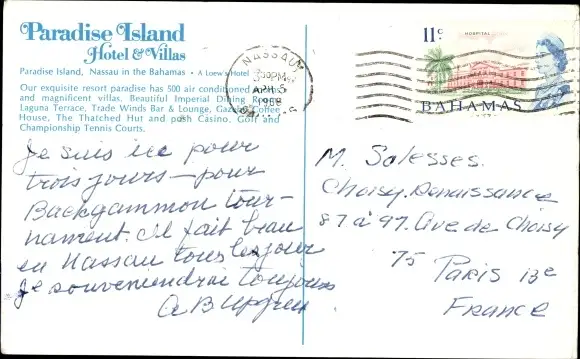 Paradise Island
Hotel & Villas
Paradise Island, Nassau in the Bahamas • A Loew's Hotel
Our exquisite resort paradise has 500 air conditioned rooms
and magnificent villas. Beautiful Imperial Dining Room,
Laguna Terrace, Trade Winds Bar & Lounge, Coffee
House, The Thatched Hut and posh Casino. Golf and
Championship Tennis Courts.
Je suis ice pour
trois jours — pour
Backgammon tour-
nament. Il fait beau
en Nassau tous les jour
Je souveniendrai toujours
A B Upgren
NASSAU
30 PM
APR 5
1968
HOSPITAL
11c
BAHAMAS
M. Solesses.
Choisy. Renaissance
87 à 97. Ave. de Choisy
75 Paris 13e
France